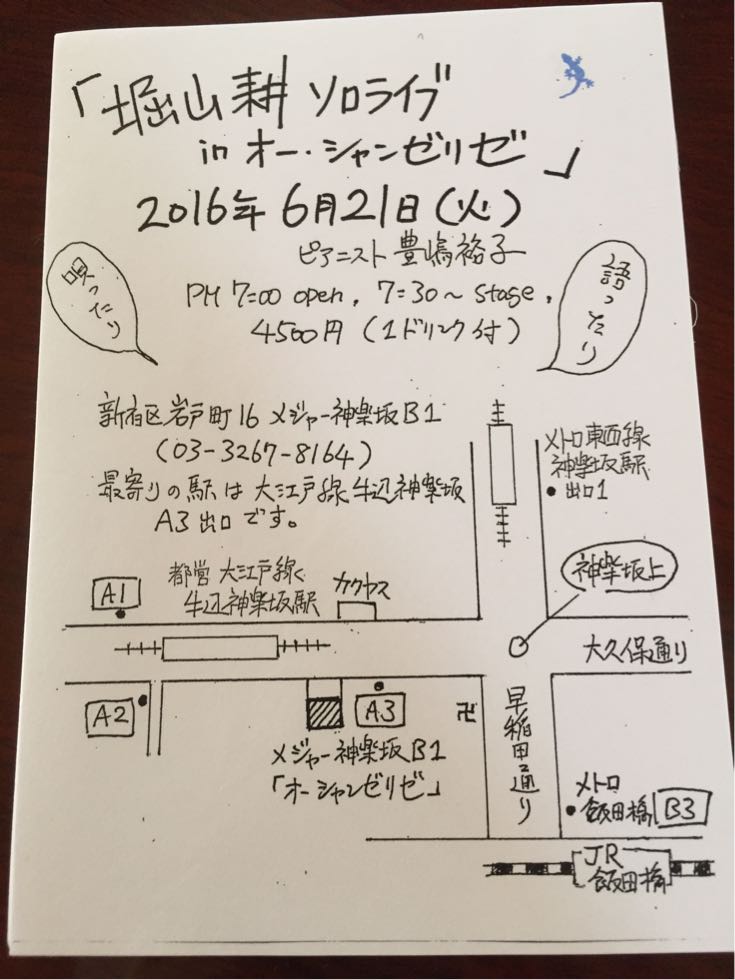 「堀山耕 ソロライブ
in オー・シャンゼリゼ」
2016年 6月21日(火)
ピアニスト 豊嶋裕子
唄ったり
語ったり
PM 7:00 open, 7:30~ stage,
4500円 (1ドリンク付)
新宿区岩戸町16 メジャー神楽坂B1
(03-3267-8164)
最寄りの駅は 大江戸線牛込神楽坂
A3出口です。
メトロ東西線
神楽坂駅
出口1
神楽坂上
A1
都営 大江戸線
牛込神楽坂駅
カクヤス
大久保通り
A2
A3
卍
早稲田通り
メジャー神楽坂B1
「オーシャンゼリゼ」
メトロ
飯田橋 B3
JR
飯田橋